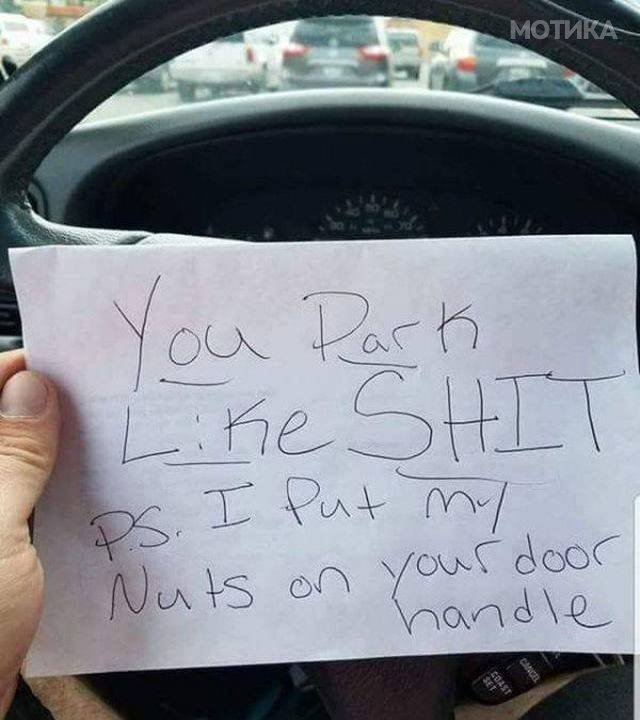 МОТИКА
You Park
Like SHIT
P.S. I Put my
Nuts on your door
handle
CANCEL
COAST
SET